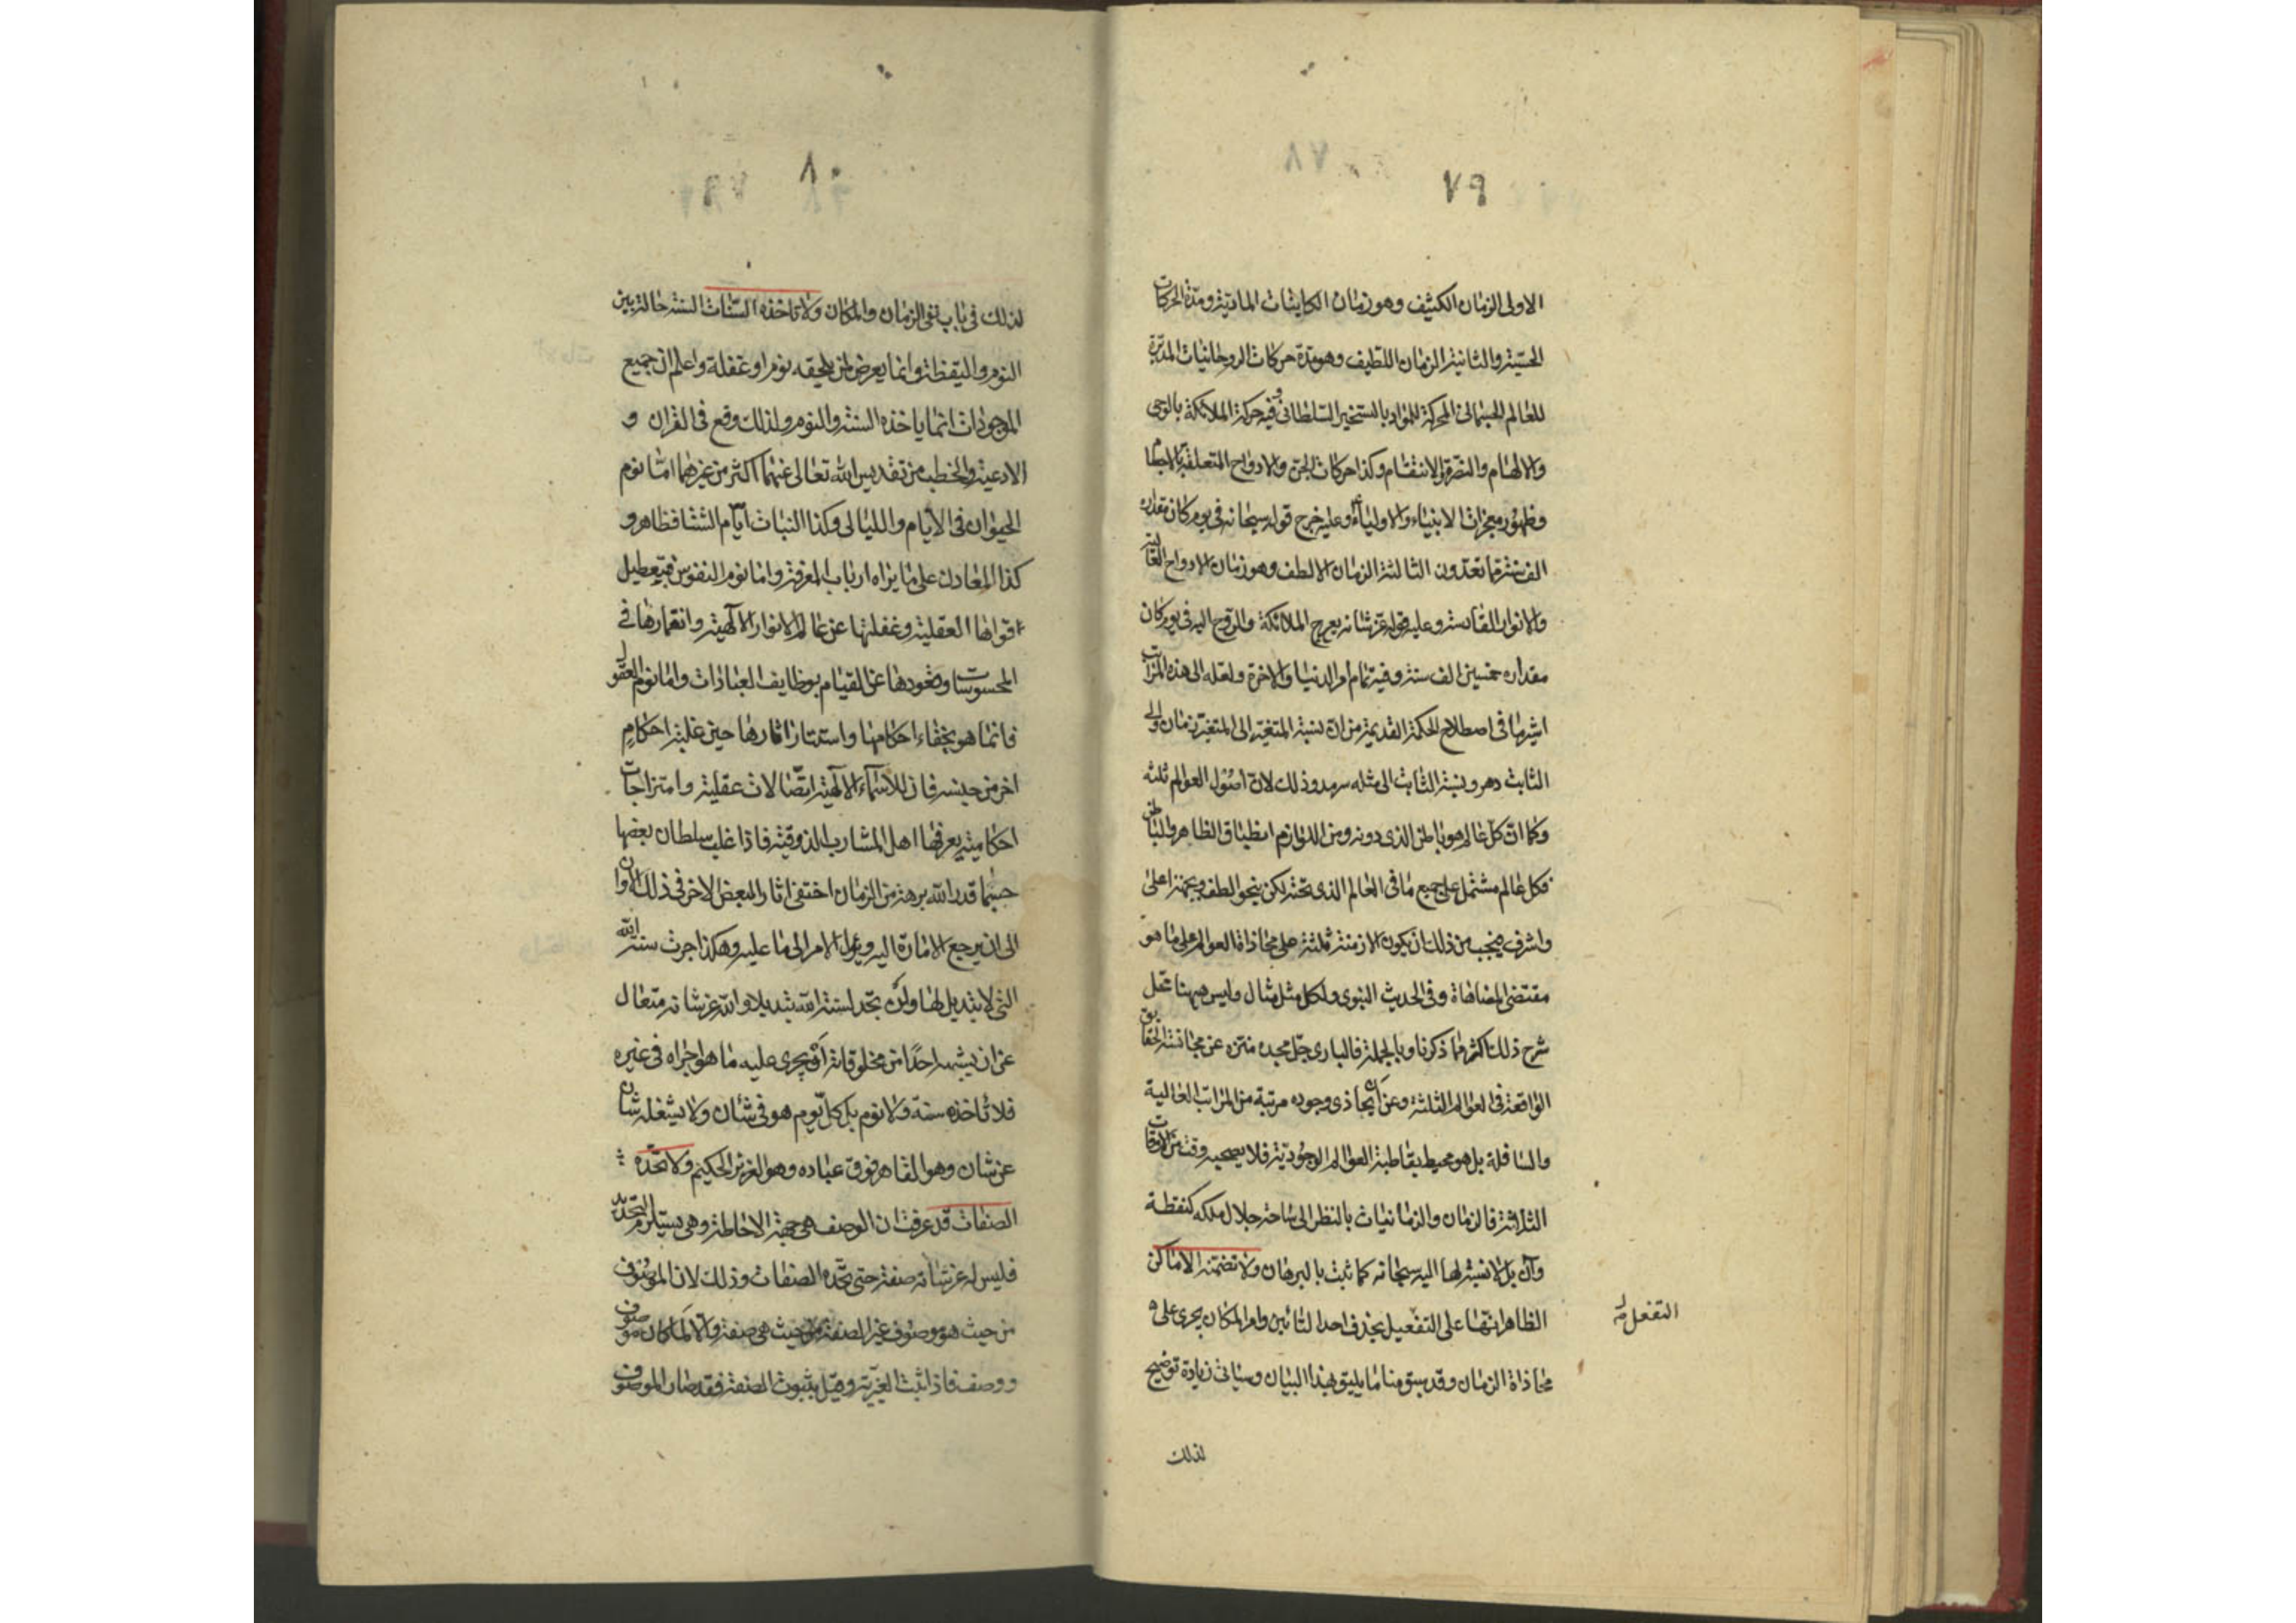 ٧٩
الاولى الزمان الكثيف وهو زمان الكاينات المادية ومدة الحركات
الحسّية والثانية الزمان اللطيف وهو مدة حركات الروحانيات المدبّرة
للعالم الجسمانى المحركة للمواد بالتسخير السلطانى وفيه حركة الملائكة بالوحى
والالهام والنصرة والانتقام وكذا حركات الجن والارواح المتعلقة بالاجسام
وظهور معجزات الانبياء والاولياء وعليه خرج قوله سبحانه فى يوم كان مقداره
الف سنة مما تعدّون الثالثة الزمان الالطف وهو زمان الارواح العالية
والانوار القادسة وعليه قوله عزّ شانه يعرج الملائكة والروح اليه فى يوم كان
مقداره خمسين الف سنة وفيه تمام امر الدنيا والاخرة ولعله الى هذه المراتب
اشير ما فى اصطلاح الحكمة القديمة من انّ نسبة المتغيّر الى المتغيّر زمان والى
الثابت دهر ونسبة الثابت الى مثله سرمد وذلك لانّ اصول العوالم ثلثة
وكما انّ كلّ عالم هو باطن الذى دونه ومن اللوازم انطباق الظاهر والباطن
فكل عالم مشتمل على جميع ما فى العالم الذى تحته لكن بنحو الطف وبجهة اعلى
واشرف فيجب من ذلك ان يكون الازمنة ثلثة على محاذاة العوالم على ما هو
مقتضى المضاهاة وفى الحديث النبوى ولكل مثل مثال وليس هيهنا محل
شرح ذلك اكثر مما ذكرنا وبالجملة فالبارى جلّ مجده منزه عن مجانسة الحقايق
الواقعة فى العوالم الثلثة وعن ان يحاذى وجوده مرتبة من المراتب العالية
والسافلة بل هو محيط بقاطبة العوالم الوجوديّة فلا يصحبه وقت من الاوقات
الثلاثة فالزمان والزمانيات بالنظر الى ساحة جلال ملكه كنقطة
وآن بل لا نسبة لها اليه سبحانه كما ثبت بالبرهان ولا تضمنه الاماكن
الظاهر انها على التفعيل بحذف احد التائين وامر المكان يجرى على
التفعل
محاذاة الزمان وقد سبق منا ما يليق بهذا البيان وسياتى زيادة توضيح
لذلك
٨٠
لذلك فى باب نفى الزمان والمكان ولا تاخذه السّنات السنة حالة بين
النوم واليقظة وانما يعرض لمن يلحقه نوم او غفلة واعلم ان جميع
الموجودات انما ياخذه السنة والنوم ولذلك وقع فى القران و
الادعية والخطب من تقديس الله تعالى عنهما اكثر من غيرهما امّا نوم
الحيوان فى الايام والليالى وكذا النبات ايام الشتا فظاهر و
كذا المعادن على ما يراه ارباب المعرفة واما نوم النفوس فبتعطيل
قواها العقلية وغفلتها عن عالم الانوار الالهية وانغمارها فى
المحسوسات وقعودها عن القيام بوظايف العبادات واما نوم العقول
فانما هو بخفاء احكامها واستتار اثارها حين غلبة احكام
اخر من جنسه فان للاسماء الالهية اتّصالات عقلية وامتزاجات
احكامية يعرفها اهل المشارب الذوقية فاذا غلب سلطان بعضها
حسبما قدر الله برهة من الزمان اختفى اثار البعض الاخر فى ذلك الاوان
الى ان يرجع الامارة اليه ويؤل الامر الى ما عليه وهكذا جرت سنة الله
التى لا تبديل لها ولن تجد لسنة الله تبديلا والله عز شانه متعال
عن ان يشبه احدًا من مخلوقاته او يجرى عليه ما هو اجراه فى غيره
فلا تاخذه سنة ولا نوم بل كلّ يوم هو فى شأن ولا يشغله شان
عن شان وهو القاهر فوق عباده وهو العزيز الحكيم ولا تحدّه
الصفات قد عرفت ان الوصف هى جهة الاحاطة وهى يستلزم التحديد
فليس له عز شانه صفة حتى تحدّه الصفات وذلك لان الموصوف
من حيث هو موصوف غير الصفة من حيث هى صفة والا لما كان موصوف
ووصف فاذا ثبت الغيرية وقيل بثبوت الصفة فقد صار الموصوف